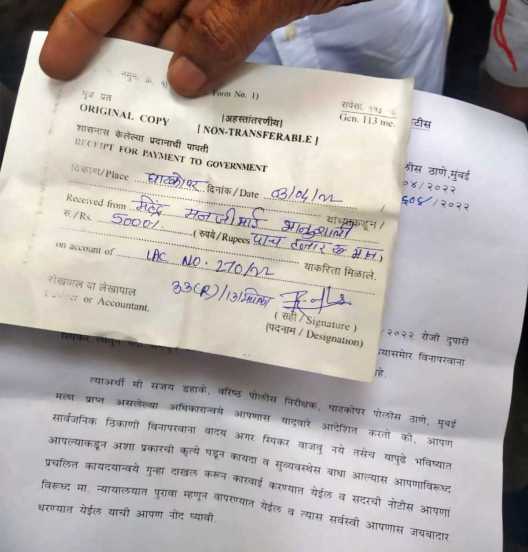 Form No. 1)
मूळ प्रत
ORIGINAL COPY
[अहस्तांतरणीय]
[NON-TRANSFERABLE]
सर्वसा. ११३
Gen. 113 me.
शासनास केलेल्या प्रदानाची पावती
RECEIPT FOR PAYMENT TO GOVERNMENT
ठिकाण/Place घाटकोपर दिनांक/Date 03/04/22
Received from मनजीभाई भानुशाली यांच्याकडून/
रु./Rs. 5000/- (रुपये/Rupees पाच हजार रु
on account of LAC NO. 270/22 याकरिता मिळाले.
रोखपाल वा लेखापाल
or Accountant.
33(R)/131
(सही/Signature)
(पदनाम/Designation)
टीस
ठाणे,मुंबई
०४/२०२२
/२०२२
२०२२ रोजी दुपारी
विनापरवाना
आहे.
त्याअर्थी मी संजय डहाके, वरिष्ठ पोलीस निरीक्षक, घाटकोपर पोलीस ठाणे, मुंबई
मला प्राप्त असलेल्या अधिकारान्वये आपणास याद्वारे आदेशित करतो की, आपण
सार्वजनिक ठिकाणी विनापरवाना वाद्य अगर स्पिकर वाजवु नये तसेच यापुढे भविष्यात
आपल्याकडून अशा प्रकारची कृत्ये घडुन कायदा व सुव्यवस्थेस बाधा आल्यास आपणाविरूध्द
प्रचलित कायदयान्वये गुन्हा दाखल करून कारवाई करण्यात येईल व सदरची नोटीस आपणा
विरूध्द मा. न्यायालयात पुरावा म्हणून वापरण्यात येईल व त्यास सर्वस्वी आपणास जबाबदार
धरण्यात येईल याची आपण नोंद घ्यावी.